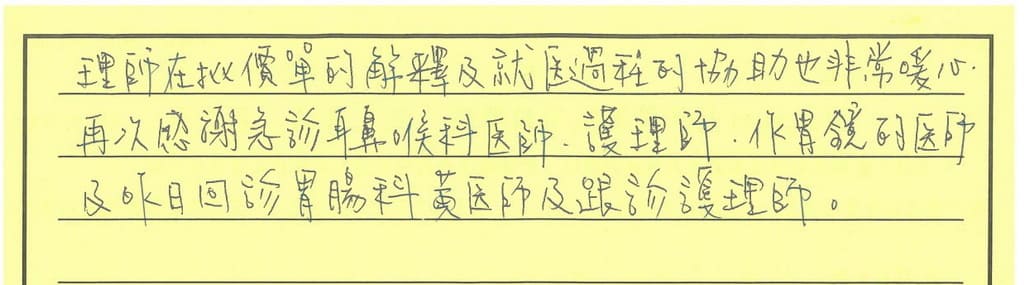 理師在批價單的解釋及就医過程的協助也非常暖心.
再次感謝急診耳鼻喉科医師.護理師.作胃鏡的医師
及昨日回診胃腸科黃医師及跟診護理師。